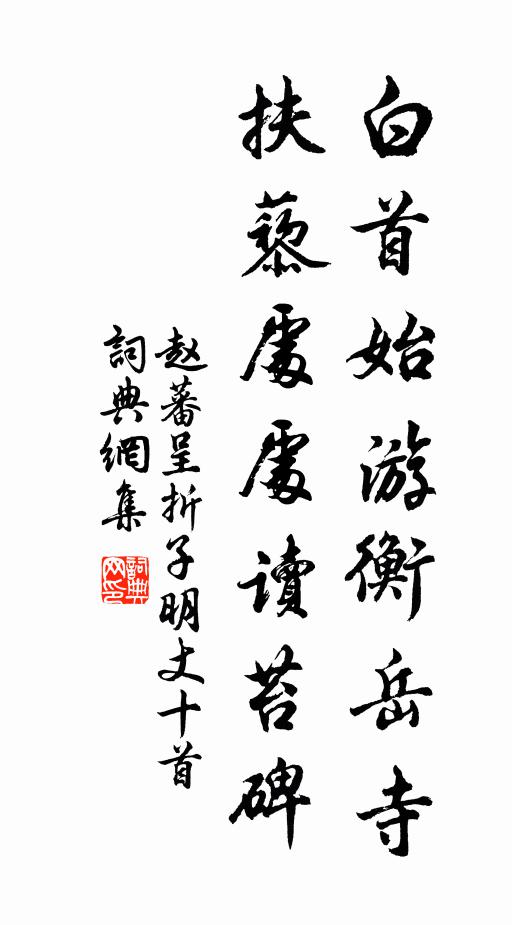 白首始游衡岳寺
扶藜處處读苔碑
赵蕃呈折子明丈十首
詞典網集
詞典网印